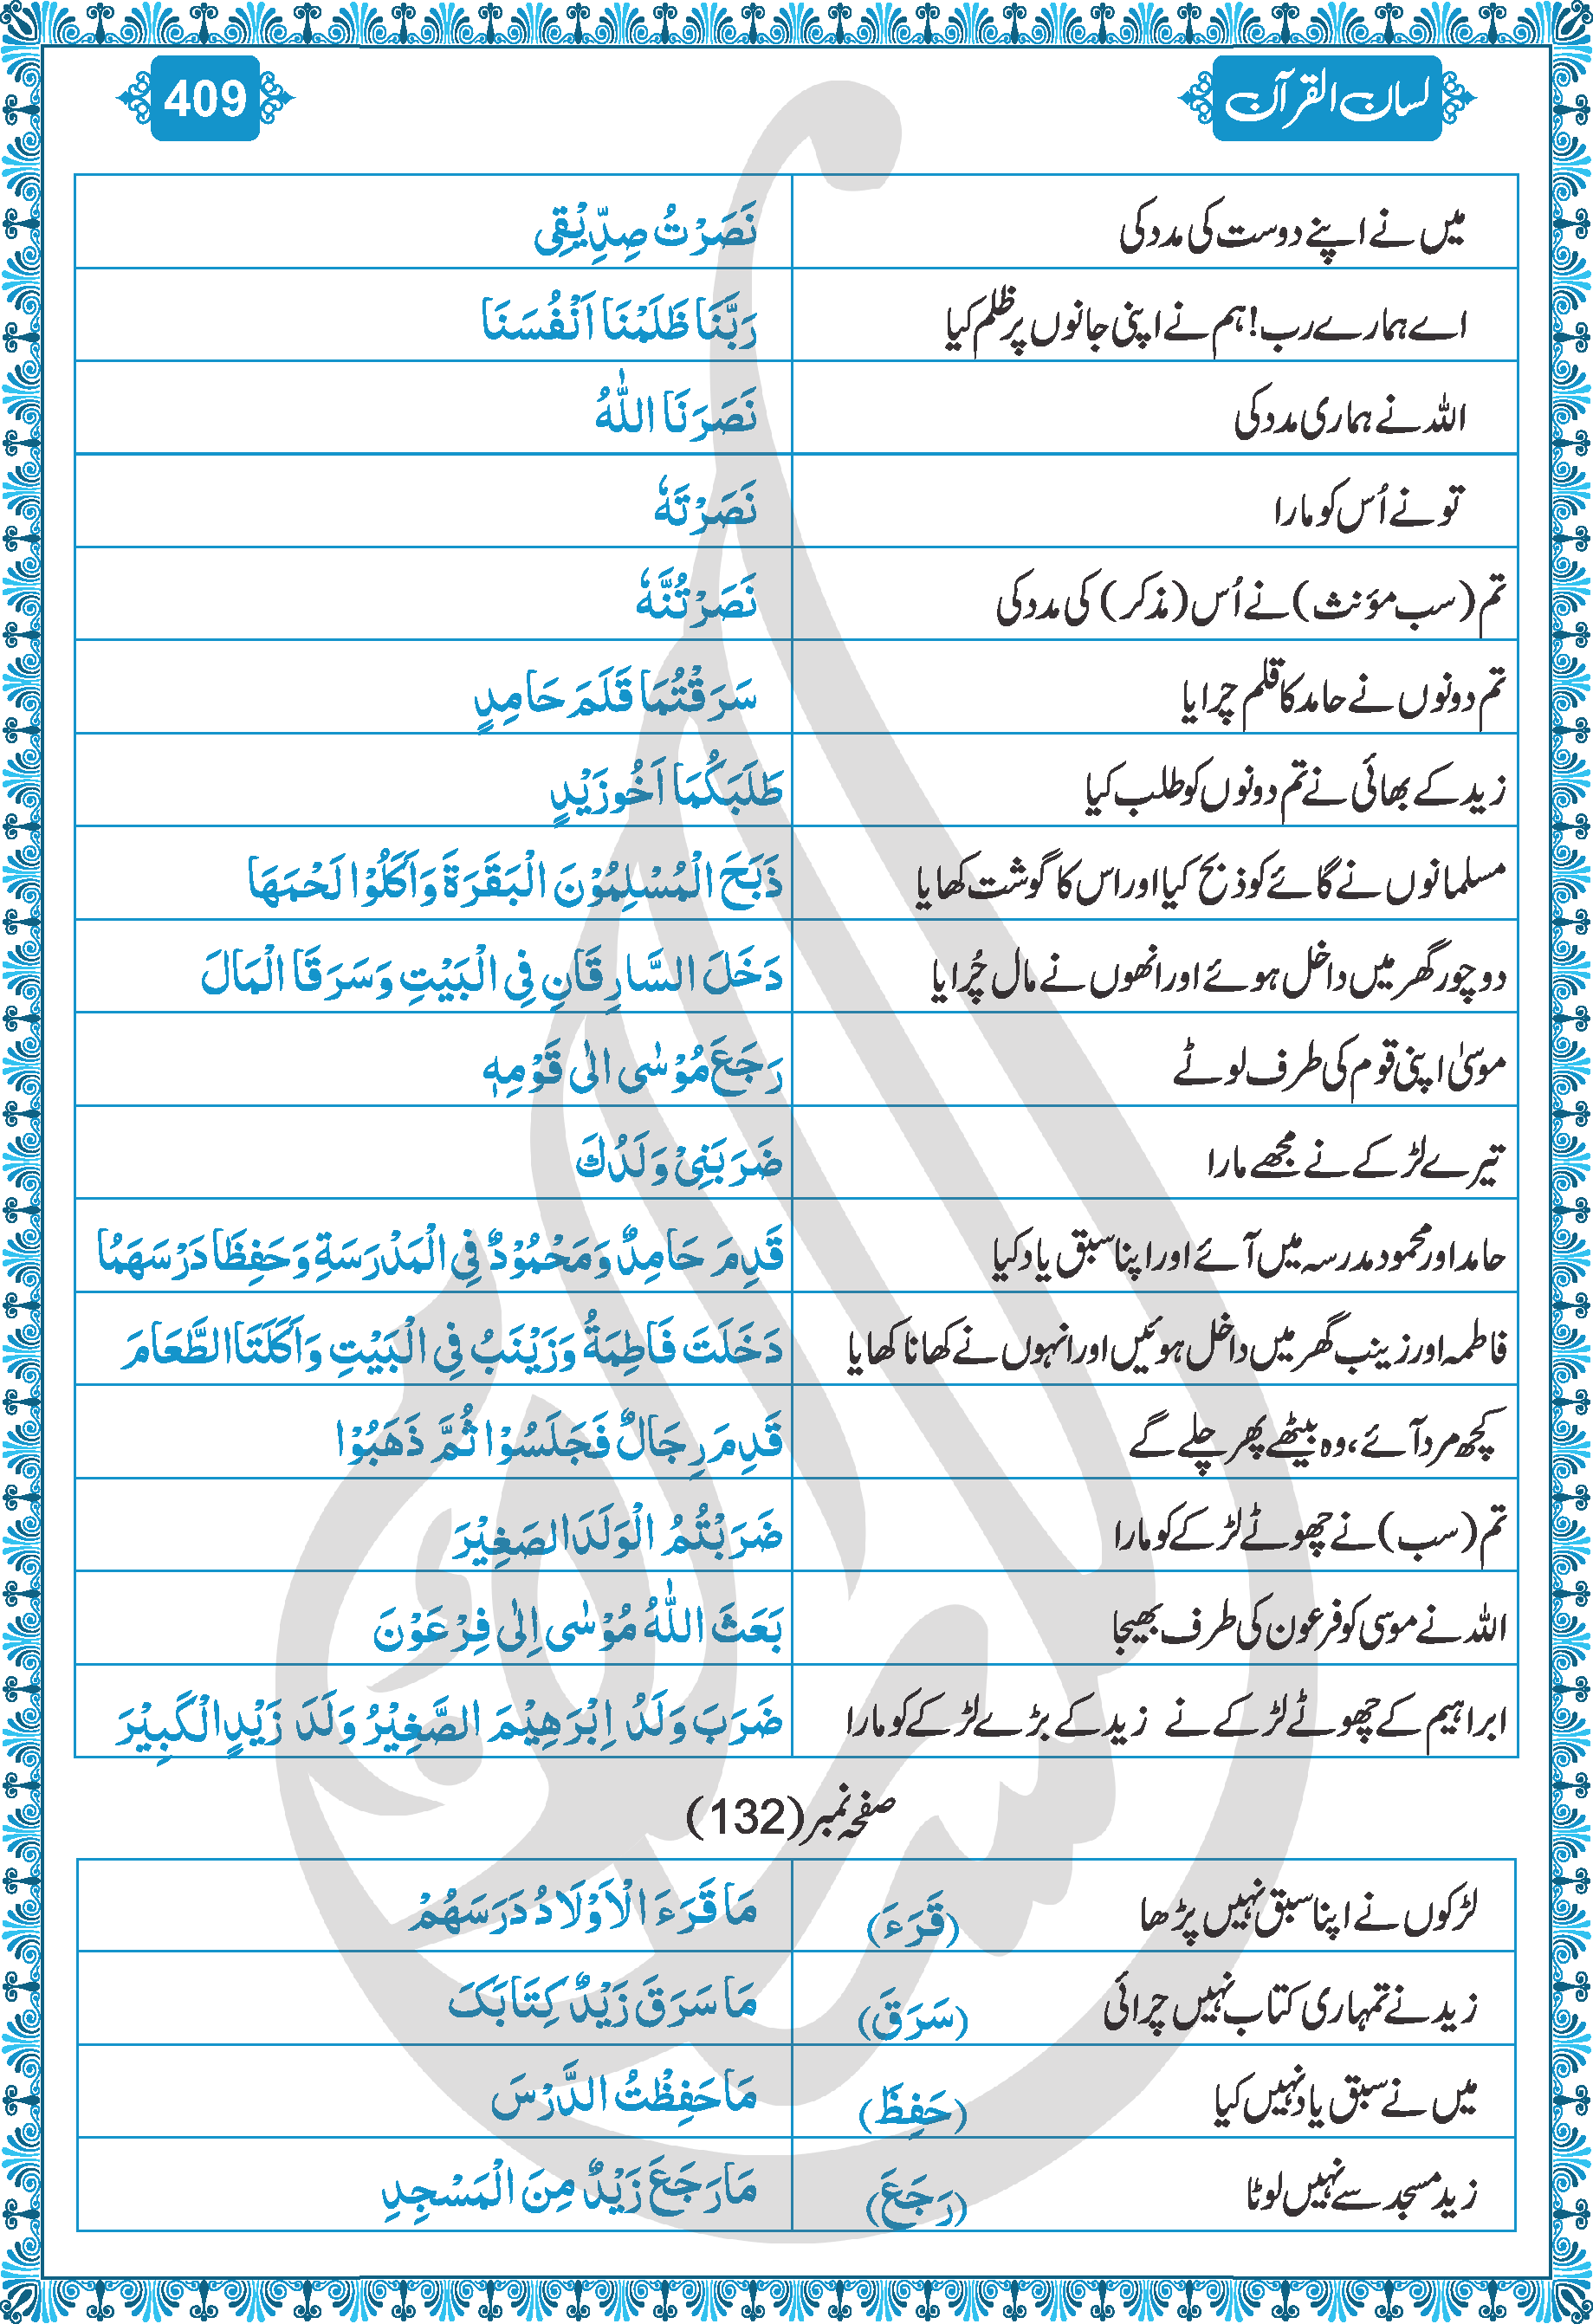 لسان القرآن
409
میں نے اپنے دوست کی مدد کی نَصَرْتُ صِدِّيْقِی
اے ہمارے رب! ہم نے اپنی جانوں پر ظلم کیا رَبَّنَا ظَلَمْنَا اَنْفُسَنَا
اللہ نے ہماری مدد کی نَصَرَنَا اللّٰهُ
تو نے اُس کو مارا نَصَرْتَهٗ
تم (سب مؤنث) نے اُس (مذکر) کی مدد کی نَصَرْتُنَّهٗ
تم دونوں نے حامد کا قلم چرایا سَرَقْتُمَا قَلَمَ حَامِدٍ
زید کے بھائی نے تم دونوں کو طلب کیا طَلَبَكُمَا اَخُوزَيْدٍ
مسلمانوں نے گائے کو ذبح کیا اور اس کا گوشت کھایا ذَبَحَ الْمُسْلِمُوْنَ الْبَقَرَةَ وَاَكَلُوْا لَحْمَهَا
دو چور گھر میں داخل ہوئے اور انھوں نے مال چُرایا دَخَلَ السَّارِقَانِ فِی الْبَيْتِ وَسَرَقَا الْمَالَ
موسیٰ اپنی قوم کی طرف لوٹے رَجَعَ مُوْسٰی الٰی قَوْمِهٖ
تیرے لڑکے نے مجھے مارا ضَرَبَنِیْ وَلَدُكَ
حامد اور محمود مدرسہ میں آئے اور اپنا سبق یاد کیا قَدِمَ حَامِدٌ وَمَحْمُوْدٌ فِی الْمَدْرَسَةِ وَحَفِظَا دَرْسَهُمَا
فاطمہ اور زینب گھر میں داخل ہوئیں اور انہوں نے کھانا کھایا دَخَلَتَ فَاطِمَةُ وَزَيْنَبُ فِی الْبَيْتِ وَاَكَلَتَا الطَّعَامَ
کچھ مرد آئے، وہ بیٹھے پھر چلے گے قَدِمَ رِجَالٌ فَجَلَسُوْا ثُمَّ ذَهَبُوْا
تم (سب) نے چھوٹے لڑکے کو مارا ضَرَبْتُمُ الْوَلَدَ الصَغِيْرَ
اللہ نے موسی کو فرعون کی طرف بھیجا بَعَثَ اللّٰهُ مُوْسٰی اِلٰی فِرْعَوْنَ
ابراہیم کے چھوٹے لڑکے نے زید کے بڑے لڑکے کو مارا ضَرَبَ وَلَدُ اِبْرَهِيْمَ الصَّغِيْرُ وَلَدَ زَيْدٍ الْكَبِيْرَ
صفحہ نمبر (132)
لڑکوں نے اپنا سبق نہیں پڑھا (قَرَءَ) مَا قَرَءَ الْاَوْلَادُ دَرَسَهُمْ
زید نے تمہاری کتاب نہیں چرائی (سَرَقَ) مَا سَرَقَ زَيْدٌ كِتَابَكَ
میں نے سبق یاد نہیں کیا (حَفِظَ) مَا حَفِظْتُ الدَّرْسَ
زید مسجد سے نہیں لوٹا (رَجَعَ) مَا رَجَعَ زَيْدٌ مِنَ الْمَسْجِدِ